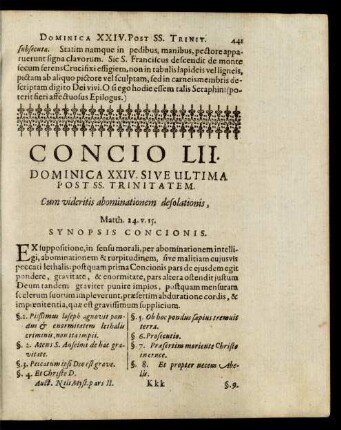 DOMINICA XXIV. POST SS. TRINIT. 441
subsecuta. Statim namque in pedibus, manibus, pectore appa-
ruerunt signa clavorum. Sic S. Franciscus descendit de monte
secum ferens Crucifixi effigiem, non in tabulis lapideis vel ligneis,
pictam ab aliquo pictore vel sculptam, sed in carneis membris de-
scriptam digito Dei vivi. O si ego hodie essem talis Seraphin! (po-
terit fieri affectuosus Epilogus.)
CONCIO LII.
DOMINICA XXIV. SIVE ULTIMA
POST SS. TRINITATEM.
Cum videritis abominationem desolationis,
Matth. 24. v. 15.
SYNOPSIS CONCIONIS.
EX suppositione, in sensu morali, per abominationem intelli-
gi, abominationem & turpitudinem, sive malitiam cujusvis
peccati lethalis: postquam prima Concionis pars de ejusdem egit
pondere, gravitate, & enormitate, pars altera ostendit justum
Deum tandem graviter punire impios, postquam mensuram
scelerum suorum impleverunt, præsertim abduratione cordis, &
impœnitentiâ, quæ est gravissimum supplicium.
§. 1. Piissimus Joseph agnovit pon-
dus & enormitatem lethalis
criminis, non ita impii.
§. 2. Item S. Anselmus de hac gra-
vitate.
§. 3. Peccatum ipsi Deo est grave.
§. 4. Et Christo D.
§. 5. Ob hoc pondus sæpius tremuit
terra.
§. 6. Prosecutio.
§. 7. Præsertim moriente Christo
in cruce.
§. 8. Et propter necem Abe-
lis.
Auct. Nliis Myst. pars II. Kkk §. 9.